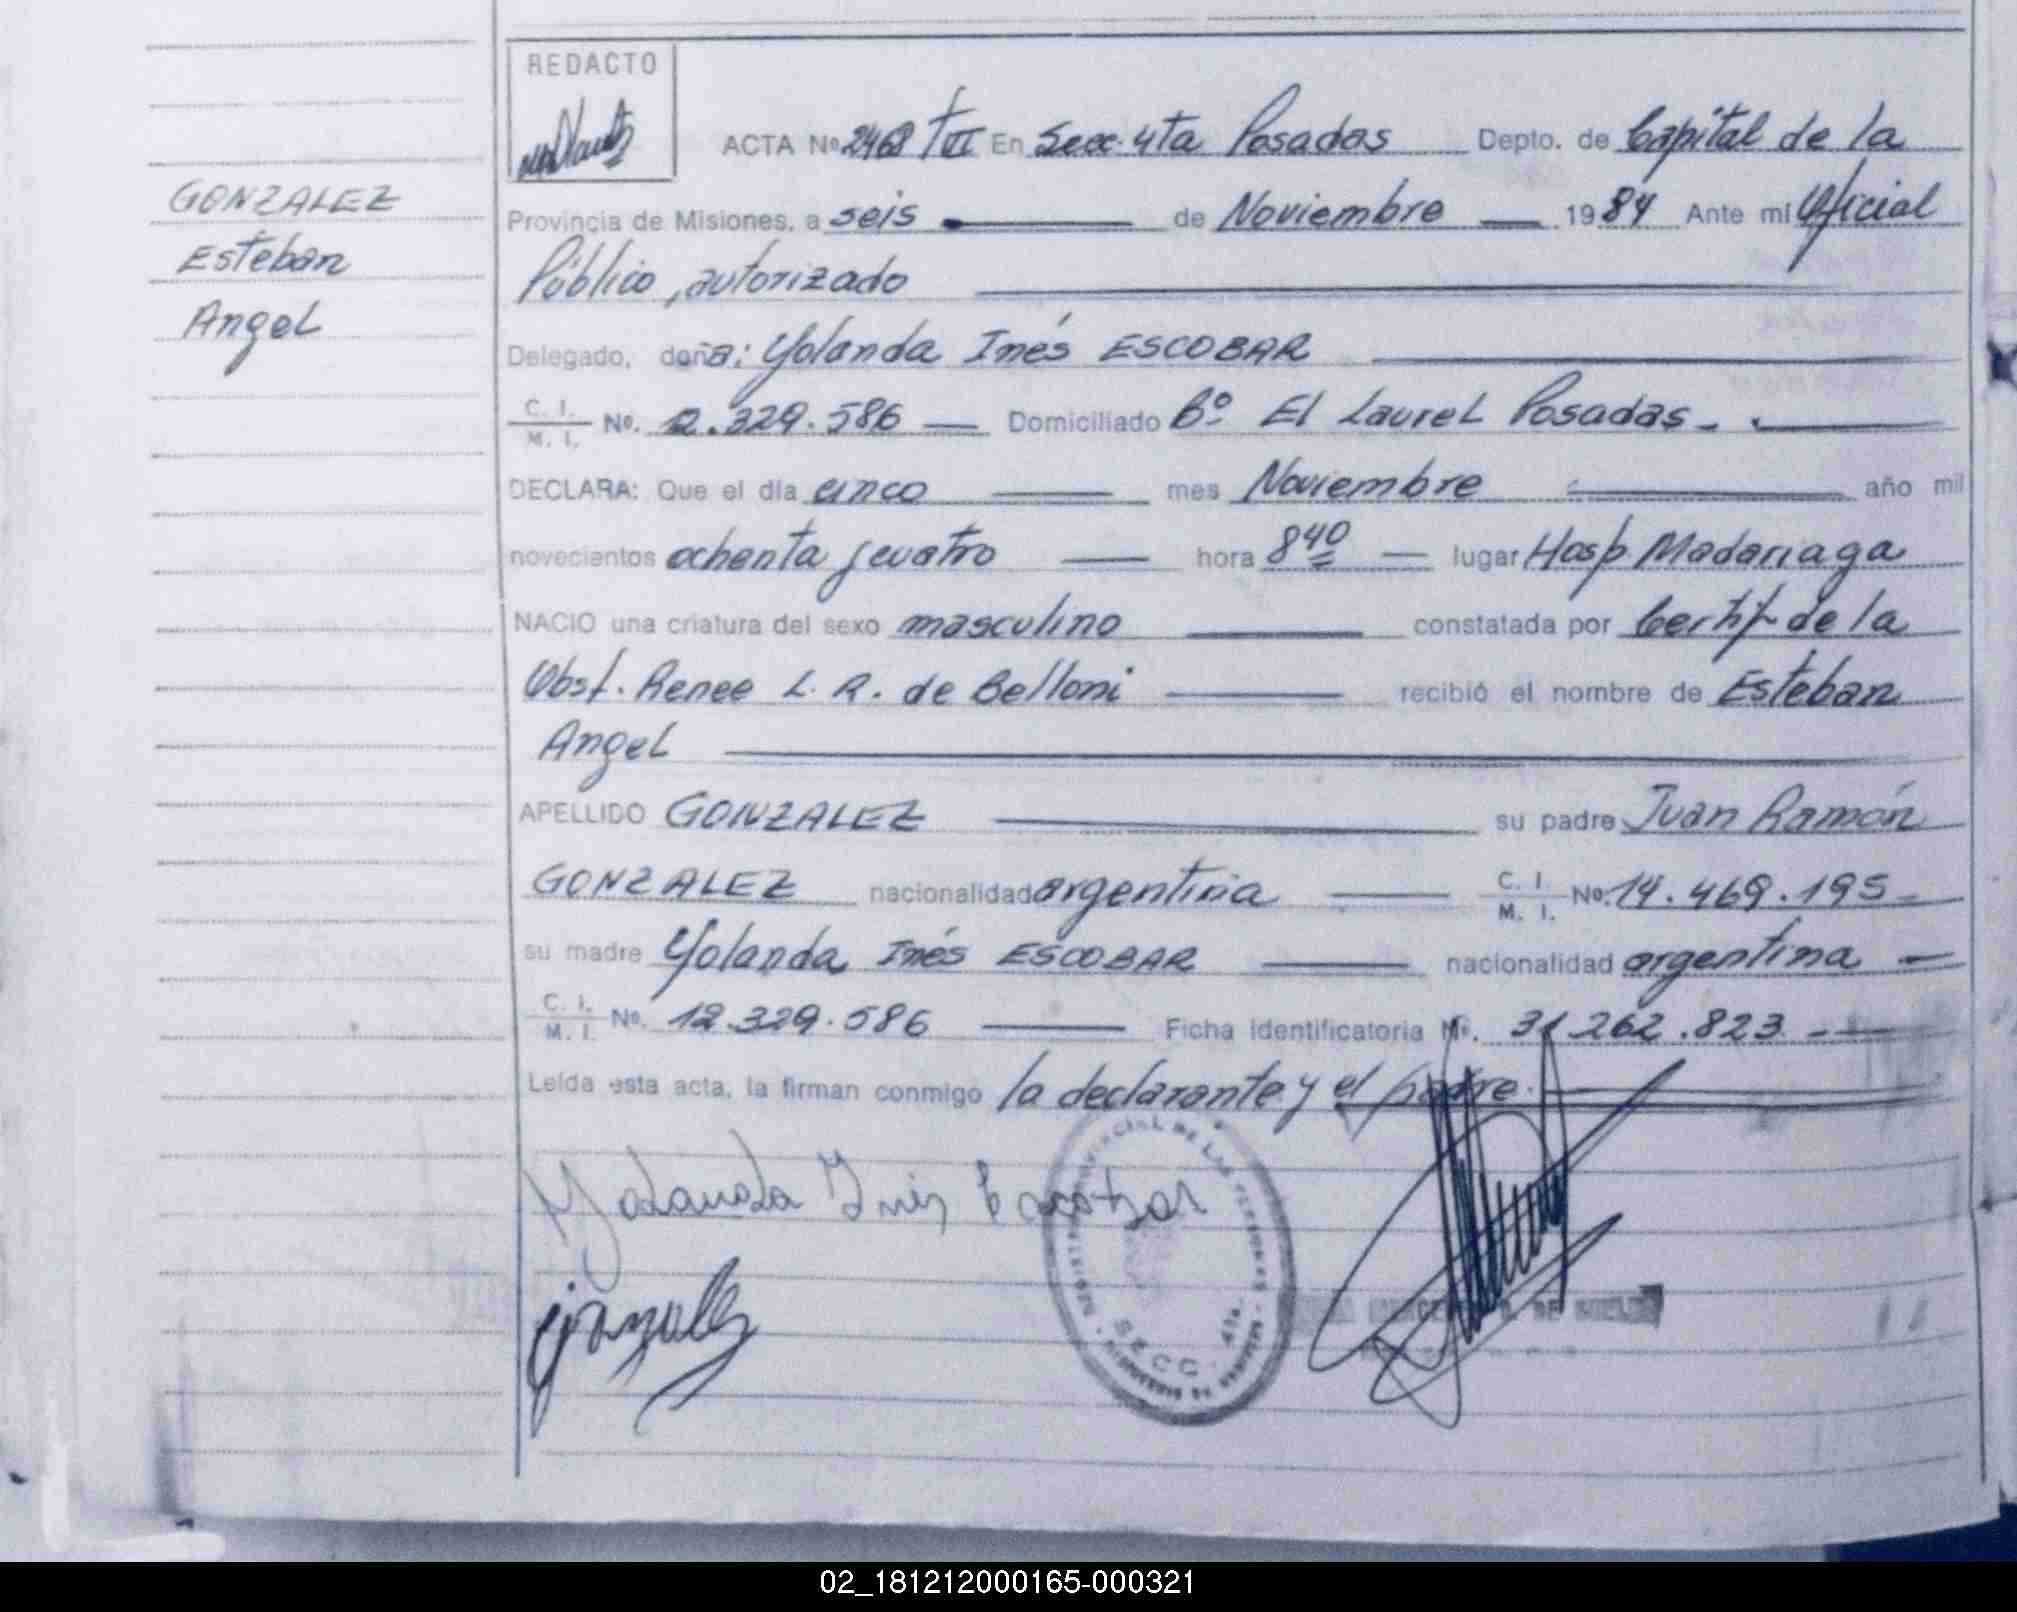 REDACTO
ACTA Nº 2468 TVII En Secc. 4ta Posadas Depto. de Capital de la
GONZALEZ
Provincia de Misiones, a seis de Noviembre 1984 Ante mi Oficial
Esteban
Público, autorizado
Angel
Delegado, doña: Yolanda Inés ESCOBAR
C. I. M. I. No. 2.329.586 Domiciliado Bº El Laurel Posadas.
DECLARA: Que el día cinco mes Noviembre año mil
novecientos ochenta y cuatro hora 8 40 lugar Hosp. Madariaga
NACIO una criatura del sexo masculino constatada por Certif. de la
Obst. Renee L. R. de Belloni recibió el nombre de Esteban
Angel
APELLIDO GONZALEZ su padre Juan Ramón
GONZALEZ nacionalidad argentina C. I. M. I. No. 14.469.195
su madre Yolanda Inés ESCOBAR nacionalidad argentina
C. I. M. I. No. 12.329.586 Ficha Identificatoria Nº. 31.262.823
Leída esta acta, la firman conmigo la declarante y el padre.
Yolanda Inés Escobar
REGISTRO PROVINCIAL DE LAS PERSONAS
SECC. 4ta.
02_181212000165-000321